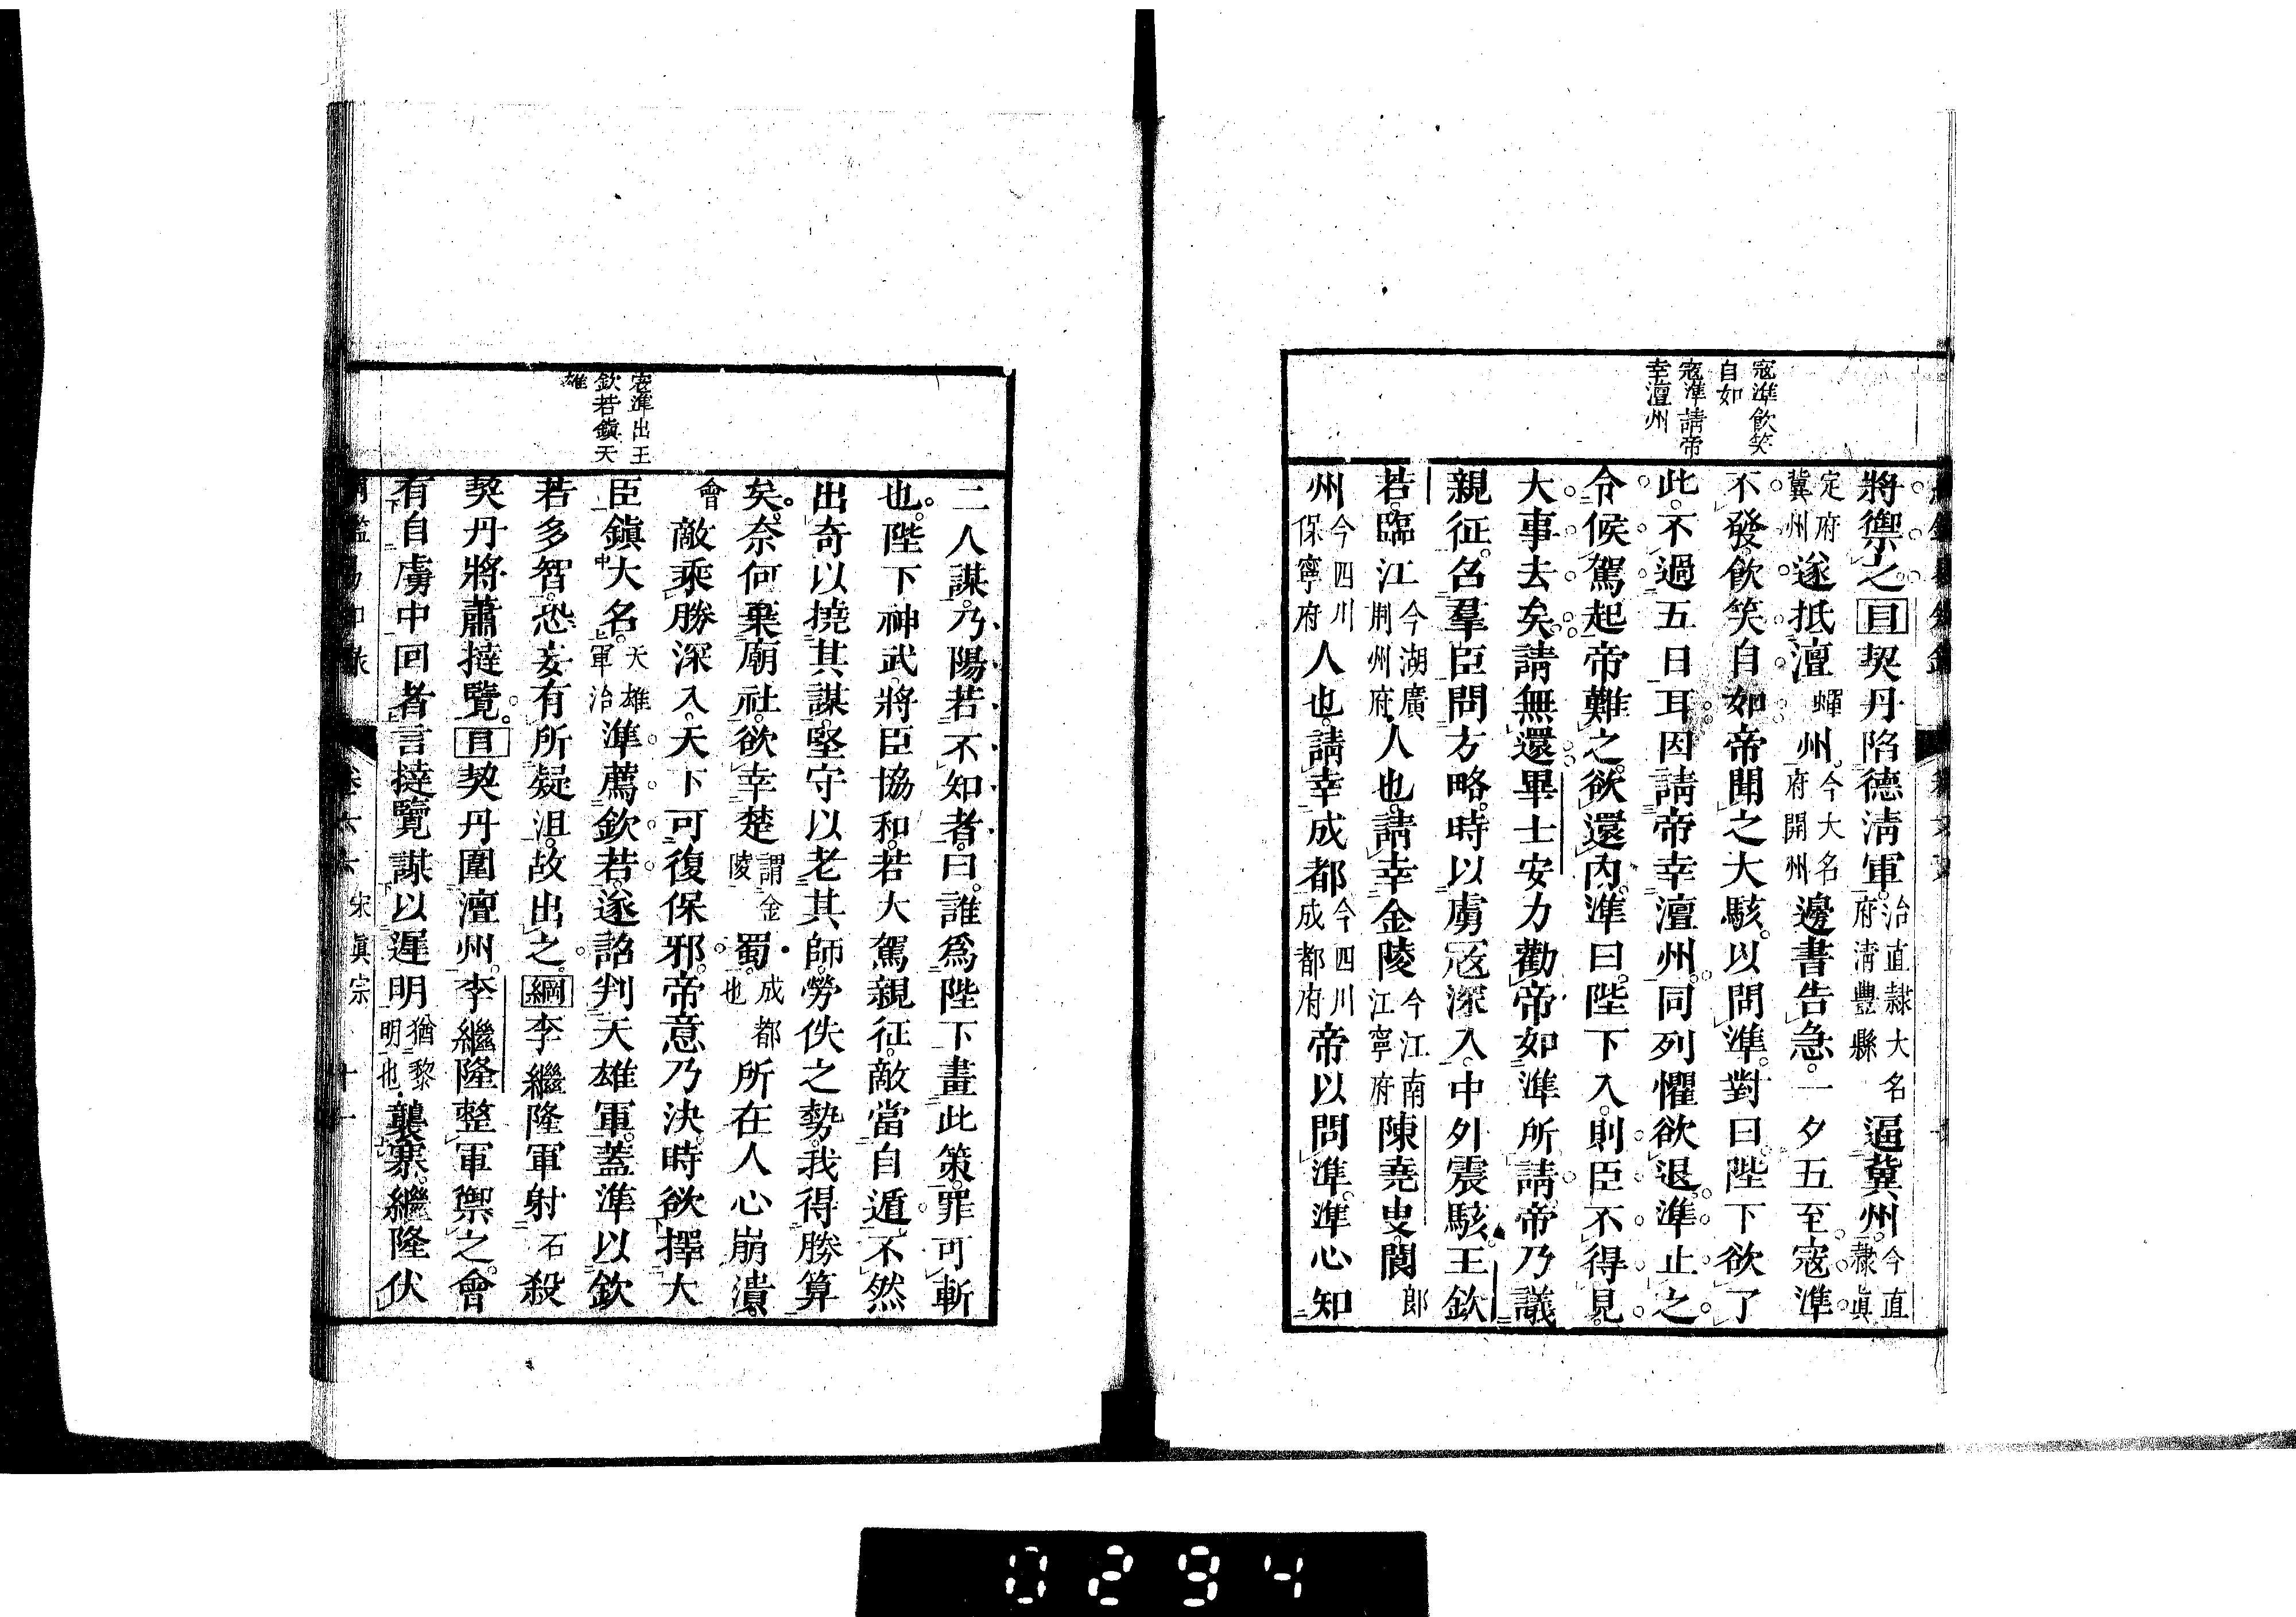 寇準飲笑
自如
寇準請帝
幸澶州
將禦之目契丹陷德淸軍治直隷大名府淸豐縣逼冀州今直隷眞
定府冀州遂抵澶蟬州今大名府開州邊書告急一夕五至寇準
不發飮笑自如帝聞之大駭以問準對曰陛下欲了
此不過五日耳因請帝幸澶州同列懼欲退準止之
令候駕起帝難之欲還內準曰陛下入則臣不得見
大事去矣請無還畢士安力勸帝如準所請帝乃議
親征召羣臣問方略時以虜寇深入中外震駭王欽
若臨江今湖廣荆州府人也請幸金陵今江南江寧府陳堯叟閬郎
州今四川保寧府人也請幸成都今四川成都府帝以問準準心知
寇準出王
欽若鎭天
雄
二人謀乃陽若不知者曰誰爲陛下畫此策罪可斬
也陛下神武將臣協和若大駕親征敵當自遁不然
出奇以撓其謀堅守以老其師勞佚之勢我得勝算
矣奈何棄廟社欲幸楚謂金陵蜀成都也所在人心崩潰
會敵乘勝深入天下可復保邪帝意乃決時欲擇大
臣鎭大名天雄軍治準薦欽若遂詔判天雄軍蓋準以欽
若多智恐妄有所疑沮故出之綱李繼隆軍射石殺
契丹將蕭撻覽目契丹圍澶州李繼隆整軍禦之會
有自虜中回者言撻覽謀以遲明猶黎明也襲寨繼隆伏
卷六六 宋眞宗 十一
0294